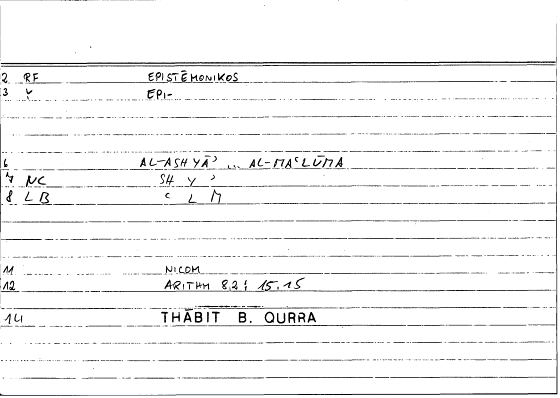 2 RF EPISTĒMONIKOS
3 V EPI-
6 AL-ASHYĀʾ ... AL-MAʿLŪMA
7 NC SH Y ʾ
8 LB ʿ L M
11 NICOM
12 ARITHM 8,2 ; 15.15
14 THĀBIT B. QURRA